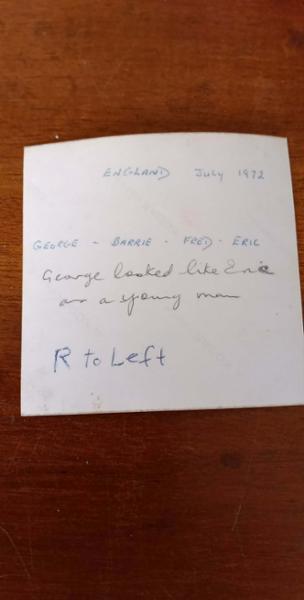 ENGLAND July 1972
GEORGE - BARRIE - FRED - ERIC
George looked like Eric
as a young man
R to Left